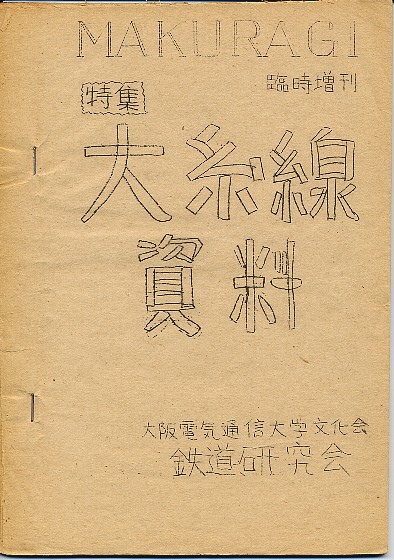 MAKURAGI
臨時増刊
特集
大糸線
資料
大阪電気通信大学文化会
鉄道研究会